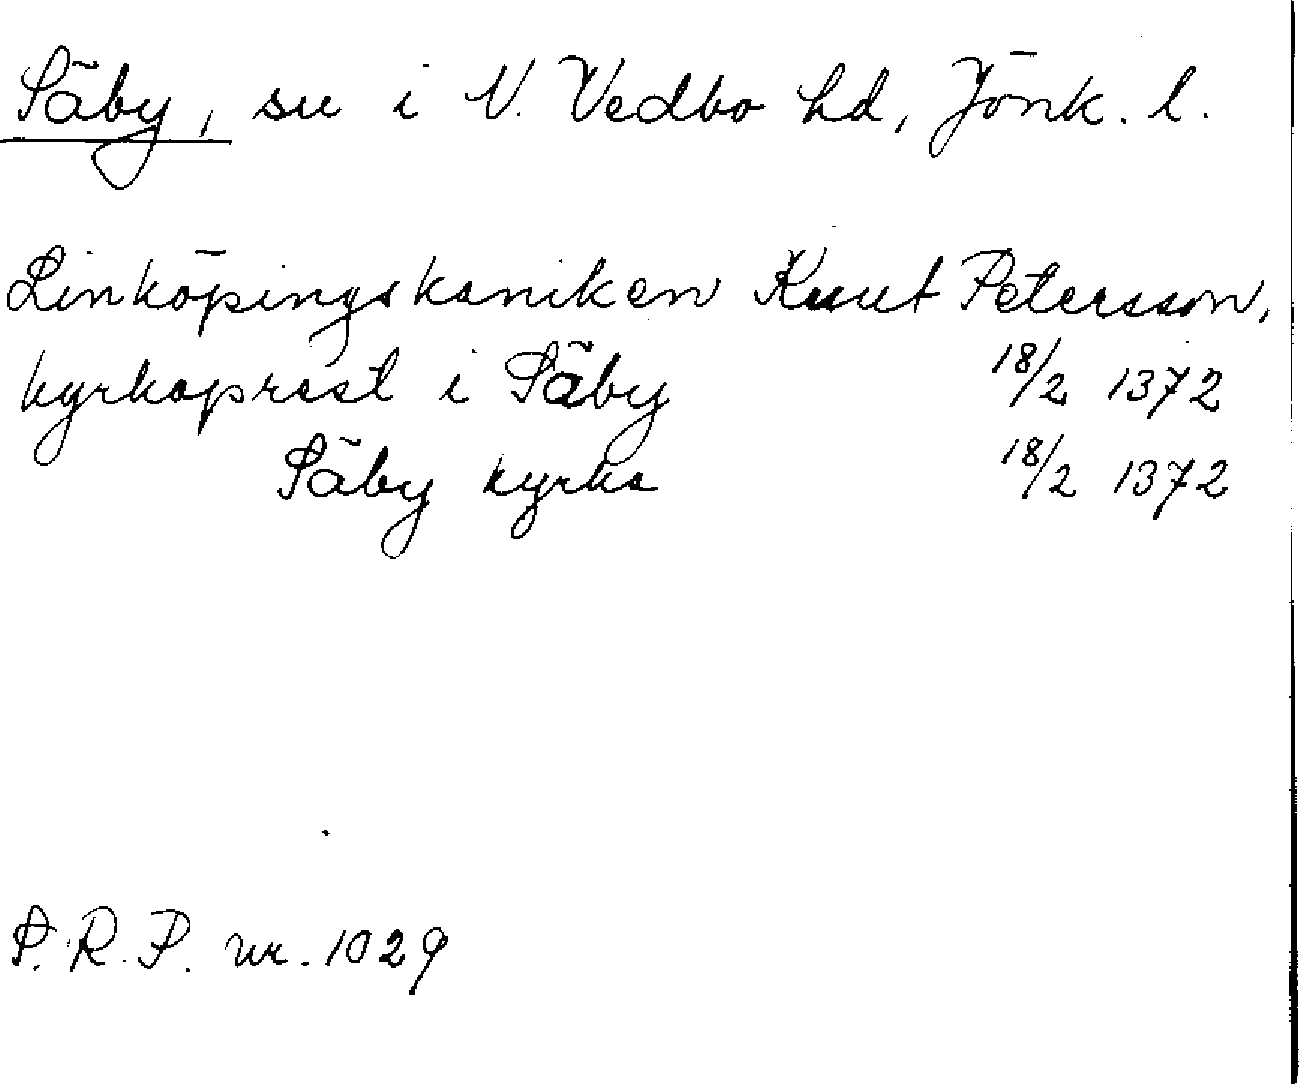 Säby, sn i N. Vedbo hd, Jönk. l.
Linköpingskaniken Knut Petersson,
kyrkoprest i Säby 18/2 1372
Säby kyrka 18/2 1372
S. R. P. nr. 1029